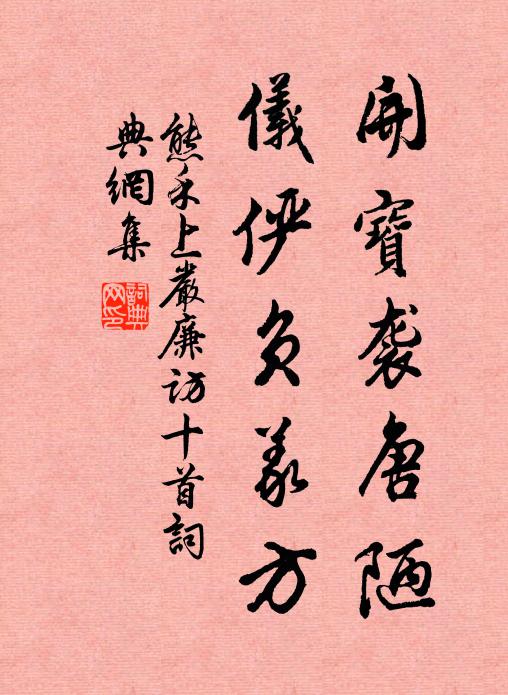 開寶襲唐陋
儀伊負義方
熊禾上嚴廉訪十首詞
典網集
詞典網印